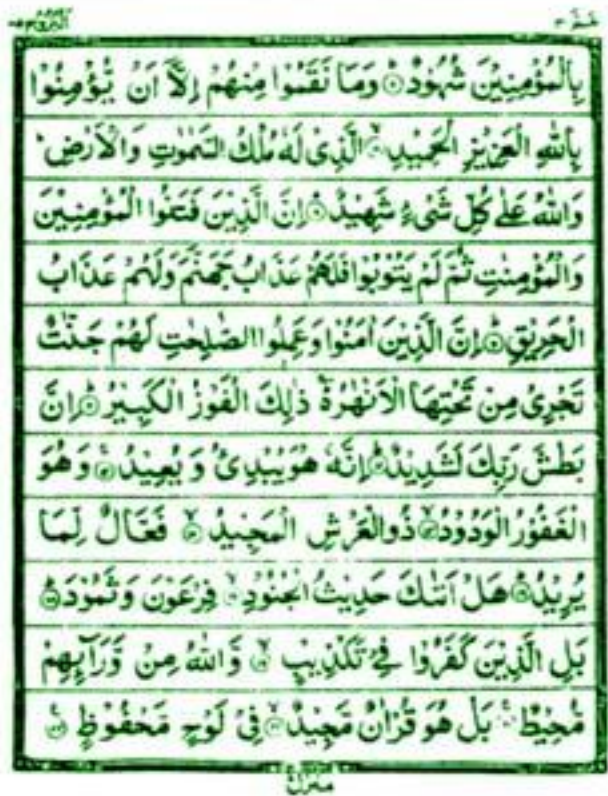 عَمَّ ٣٠ البروج ٨٥
بِالْمُؤْمِنِيْنَ شُهُوْدٌ ۝٧ وَمَا نَقَمُوْا مِنْهُمْ اِلَّاۤ اَنْ يُّؤْمِنُوْا
بِاللّٰهِ الْعَزِيْزِ الْحَمِيْدِ ۝٨ الَّذِىْ لَهٗ مُلْكُ السَّمٰوٰتِ وَالْاَرْضِ ؕ
وَاللّٰهُ عَلٰى كُلِّ شَىْءٍ شَهِيْدٌ ۝٩ اِنَّ الَّذِيْنَ فَتَنُوا الْمُؤْمِنِيْنَ
وَالْمُؤْمِنٰتِ ثُمَّ لَمْ يَتُوْبُوْا فَلَهُمْ عَذَابُ جَهَنَّمَ وَلَهُمْ عَذَابُ
الْحَرِيْقِ ۝١٠ اِنَّ الَّذِيْنَ اٰمَنُوْا وَعَمِلُوا الصّٰلِحٰتِ لَهُمْ جَنّٰتٌ
تَجْرِىْ مِنْ تَحْتِهَا الْاَنْهٰرُ ۬ؕ ذٰلِكَ الْفَوْزُ الْكَبِيْرُ ۝١١ اِنَّ
بَطْشَ رَبِّكَ لَشَدِيْدٌ ۝١٢ اِنَّهٗ هُوَ يُبْدِئُ وَ يُعِيْدُ ۝١٣ وَهُوَ
الْغَفُوْرُ الْوَدُوْدُ ۝١٤ ذُو الْعَرْشِ الْمَجِيْدُ ۝١٥ فَعَّالٌ لِّمَا
يُرِيْدُ ۝١٦ هَلْ اَتٰىكَ حَدِيْثُ الْجُنُوْدِ ۝١٧ فِرْعَوْنَ وَثَمُوْدَ ۝١٨
بَلِ الَّذِيْنَ كَفَرُوْا فِىْ تَكْذِيْبٍ ۝١٩ وَّاللّٰهُ مِنْ وَّرَآئِهِمْ
مُّحِيْطٌ ۝٢٠ بَلْ هُوَ قُرْاٰنٌ مَّجِيْدٌ ۝٢١ فِىْ لَوْحٍ مَّحْفُوْظٍ ۝٢٢
منزل